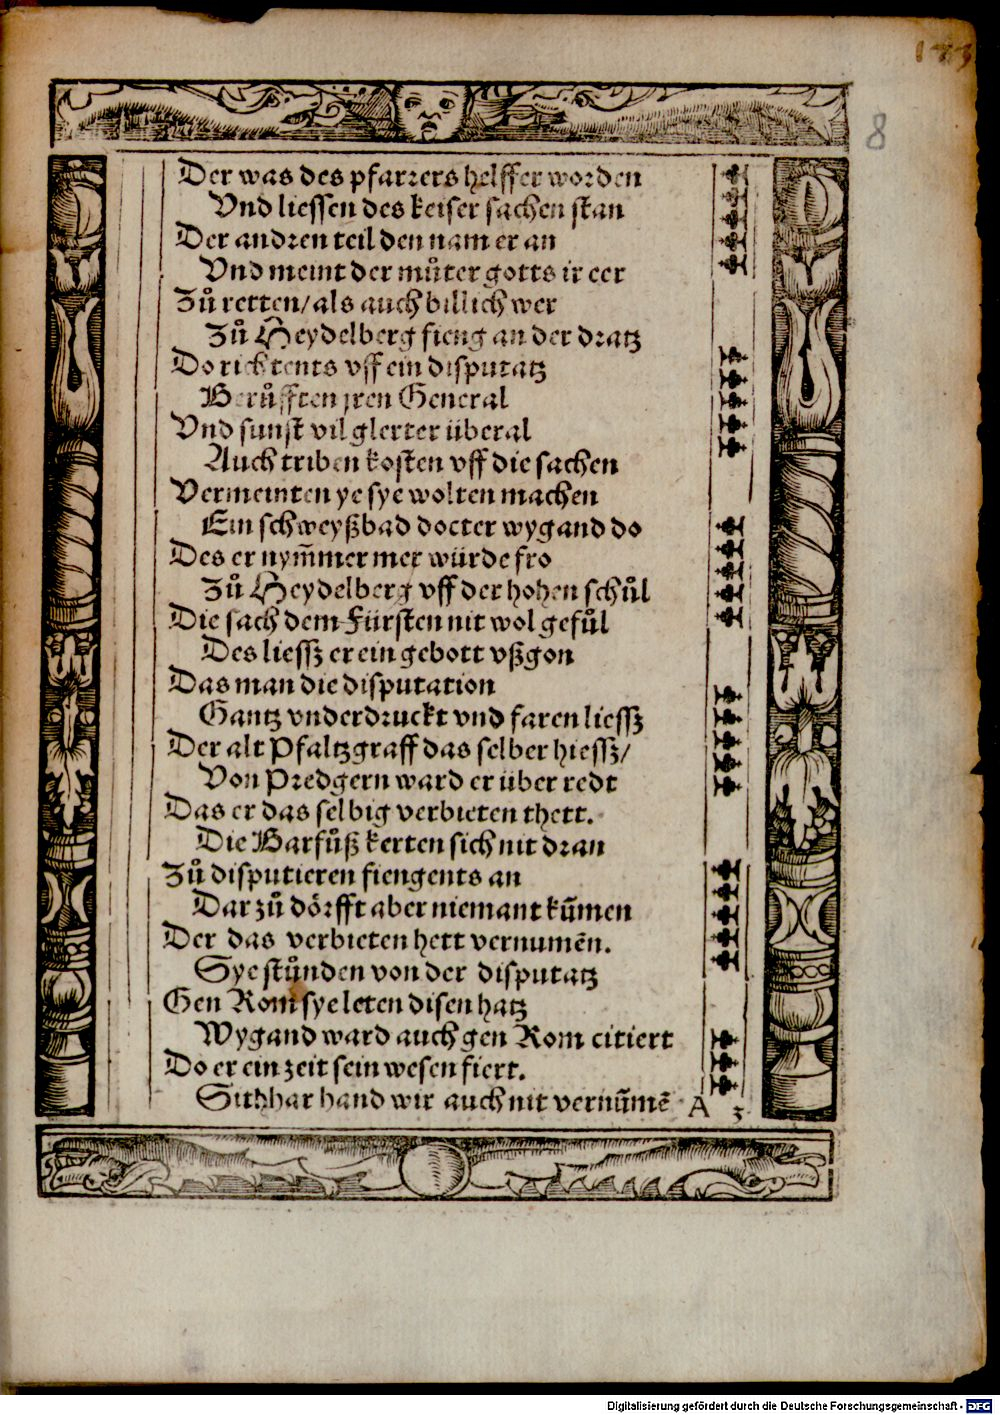 173
8
Der was des pfarrers helffer worden
Vnd liessen des keiser sachen stan
Der andren teil den nam er an
Vnd meint der můter gotts ir eer
Zů retten/ als auch billich wer
Zů Heydelberg fieng an der dratz
Do richtents vff ein disputatz
Berůfften jren General
Vnd sunst vil glerter überal
Auch triben kosten vff die sachen
Vermeinten ye sye wolten machen
Ein schweyßbad docter wygand do
Des er nym̃mer mer würde fro
Zů Heydelberg vff der hohen schůl
Die sach dem Fürsten nit wol gefůl
Des liessz er ein gebott vßgon
Das man die disputation
Gantz vnderdruckt vnd faren liessz
Der alt Pfaltzgraff das selber hiessz/
Von Predgern ward er über redt
Das er das selbig verbieten thett.
Die Barfůß kerten sich nit dran
Zů disputieren fiengents an
Dar zů dörfft aber niemant kũmen
Der das verbieten hett vernumẽn.
Sye stůnden von der disputatz
Gen Rom sye leten disen hatz
Wygand ward auch gen Rom citiert
Do er ein zeit sein wesen fiert.
Sithhar hand wir auch nit vernũmẽ A 3
Digitalisierung gefördert durch die Deutsche Forschungsgemeinschaft - DFG